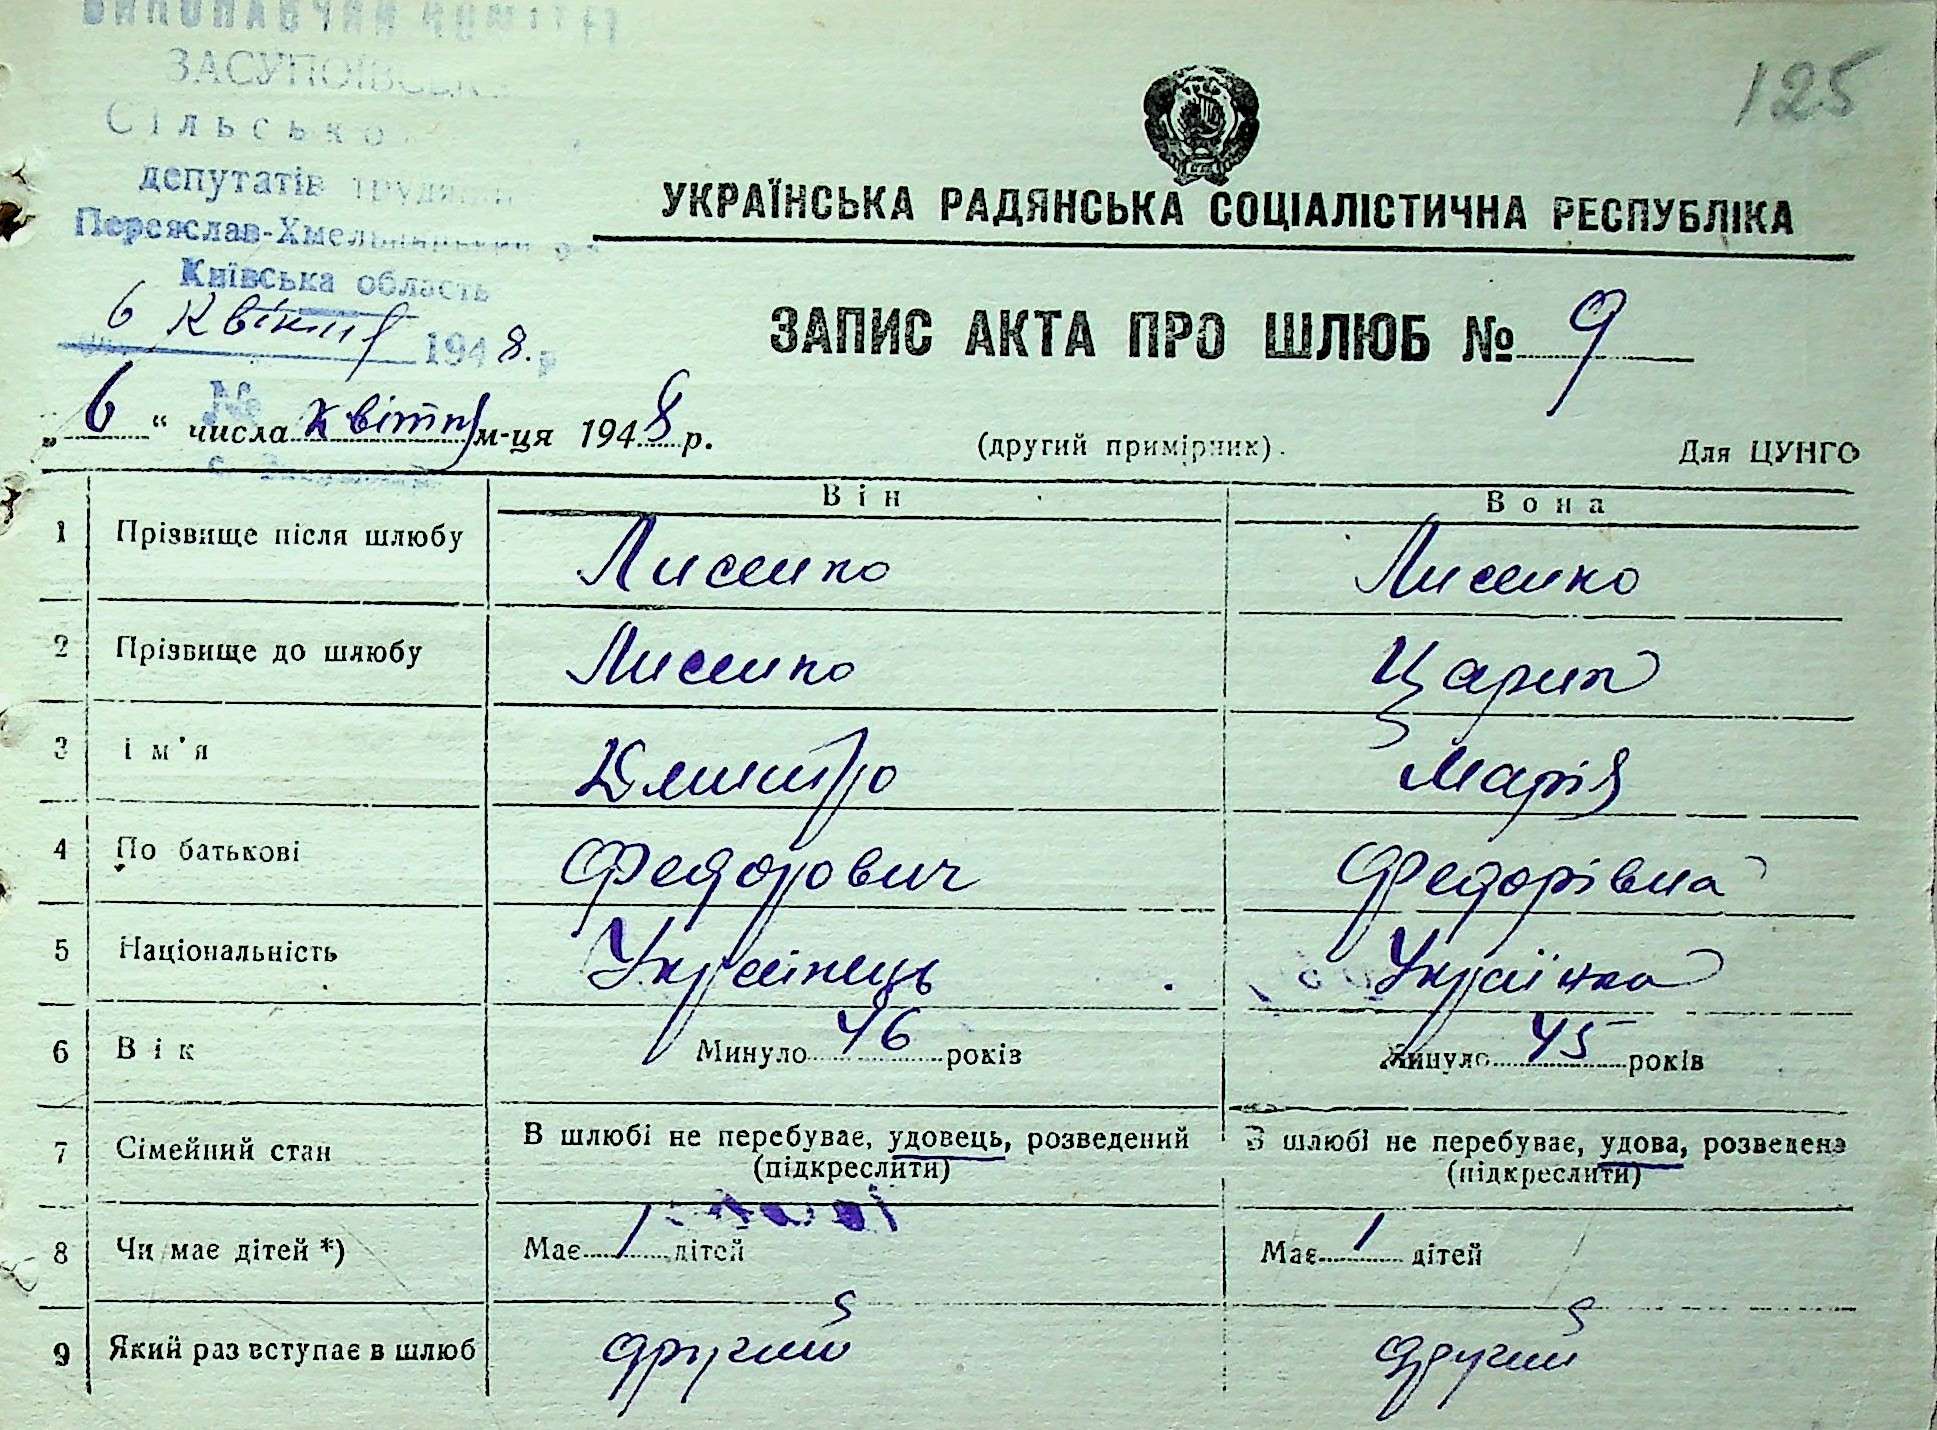 ВИКОНАВЧИЙ КОМІТЕТ
ЗАСУПОЇВСЬКА
125
Сільсько
депутатів трудящих
УКРАЇНСЬКА РАДЯНСЬКА СОЦІАЛІСТИЧНА РЕСПУБЛІКА
Переяслав-Хмельницький р-н
Київська область
6 Квітня 1948.р
ЗАПИС АКТА ПРО ШЛЮБ № 9
№
„6“ числа Квітня м-ця 1948 р.
(другий примірник).
Для ЦУНГО
с.
Він Вона
1 Прізвище після шлюбу Лисенко Лисенко
2 Прізвище до шлюбу Лисенко Царик
3 Ім'я Дмитро Марія
4 По батькові Федорович Федорівна
5 Національність Українець Українка
6 Вік Минуло 46 років Минуло 45 років
7 Сімейний стан В шлюбі не перебуває, удовець, розведений В шлюбі не перебуває, удова, розведена
(підкреслити) (підкреслити)
8 Чи має дітей *) Має 1 дітей Має 1 дітей
9 Який раз вступає в шлюб другий другий